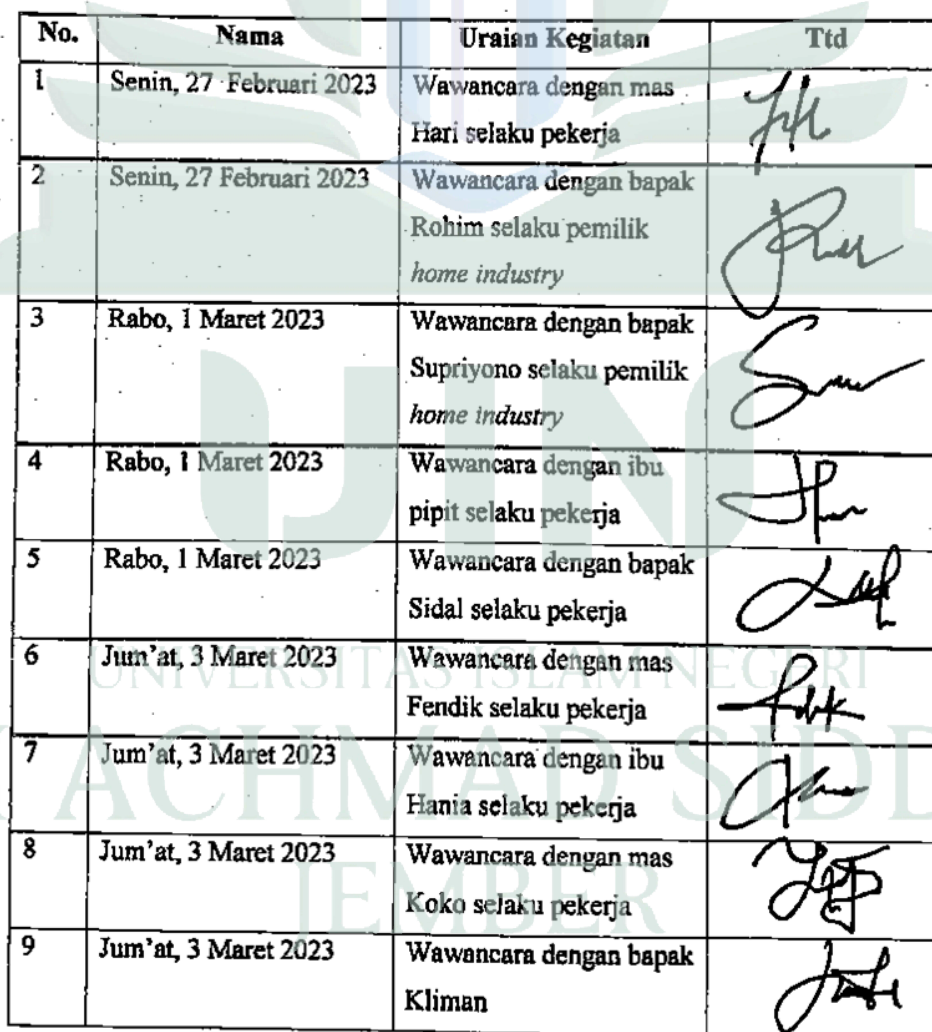 No. Nama Uraian Kegiatan Ttd
1 Senin, 27 Februari 2023 Wawancara dengan mas
Hari selaku pekerja
2 Senin, 27 Februari 2023 Wawancara dengan bapak
Rohim selaku pemilik
home industry
3 Rabo, 1 Maret 2023 Wawancara dengan bapak
Supriyono selaku pemilik
home industry
4 Rabo, 1 Maret 2023 Wawancara dengan ibu
pipit selaku pekerja
5 Rabo, 1 Maret 2023 Wawancara dengan bapak
Sidal selaku pekerja
6 Jum'at, 3 Maret 2023 Wawancara dengan mas
Fendik selaku pekerja
7 Jum'at, 3 Maret 2023 Wawancara dengan ibu
Hania selaku pekerja
8 Jum'at, 3 Maret 2023 Wawancara dengan mas
Koko selaku pekerja
9 Jum'at, 3 Maret 2023 Wawancara dengan bapak
Kliman
UIN
UNIVERSITAS ISLAM NEGERI
ACHMAD SIDD
JEMBER